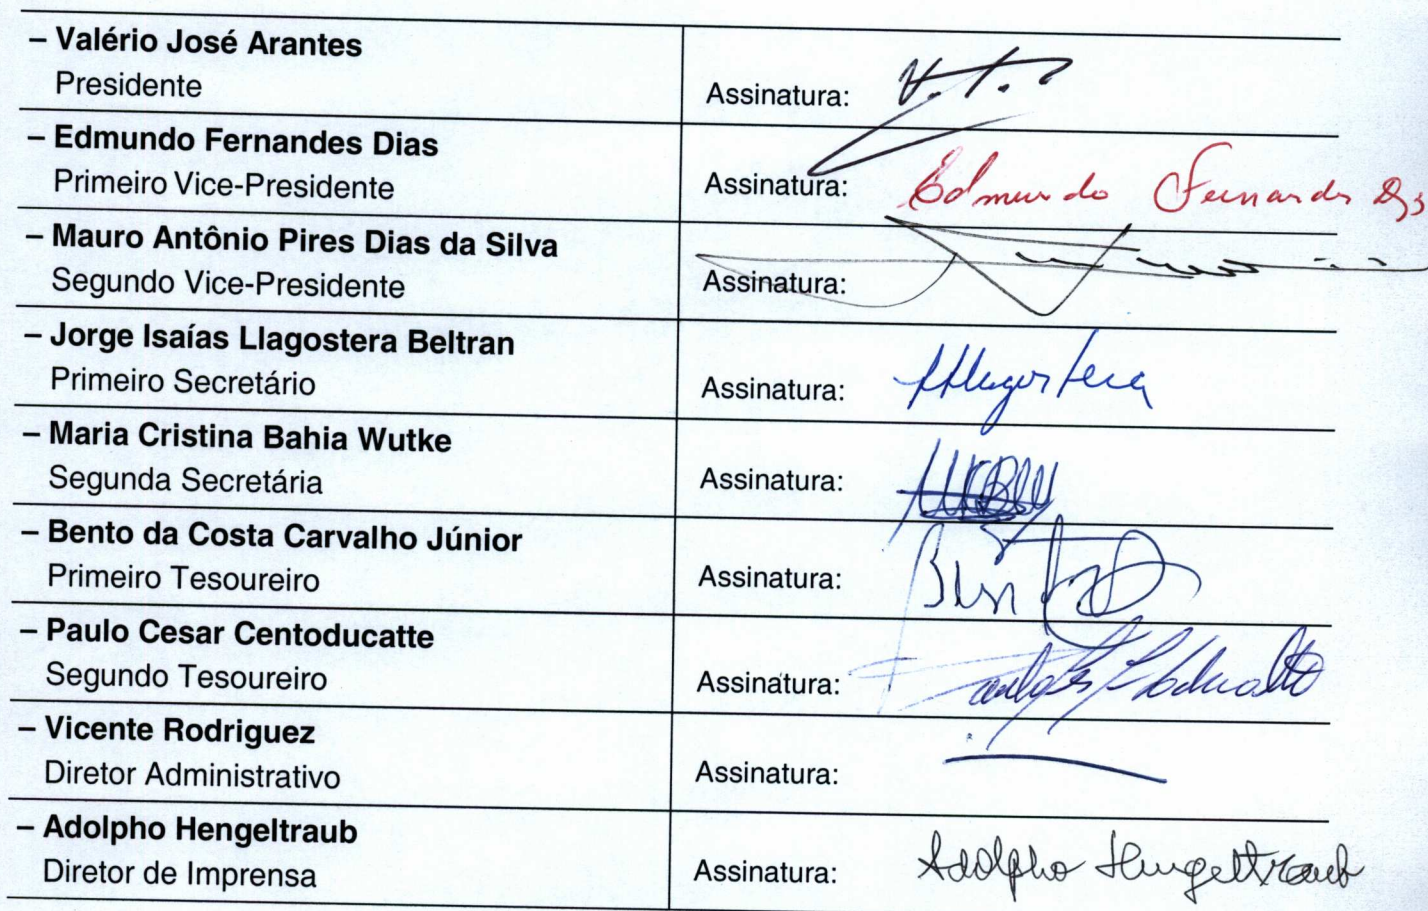 – Valério José Arantes
Presidente
Assinatura: V. A.
– Edmundo Fernandes Dias
Primeiro Vice-Presidente
Assinatura: Edmundo Fernandes Dias
– Mauro Antônio Pires Dias da Silva
Segundo Vice-Presidente
Assinatura:
– Jorge Isaías Llagostera Beltran
Primeiro Secretário
Assinatura: Llagostera
– Maria Cristina Bahia Wutke
Segunda Secretária
Assinatura:
– Bento da Costa Carvalho Júnior
Primeiro Tesoureiro
Assinatura:
– Paulo Cesar Centoducatte
Segundo Tesoureiro
Assinatura:
– Vicente Rodriguez
Diretor Administrativo
Assinatura:
– Adolpho Hengeltraub
Diretor de Imprensa
Assinatura: Adolpho Hengeltraub